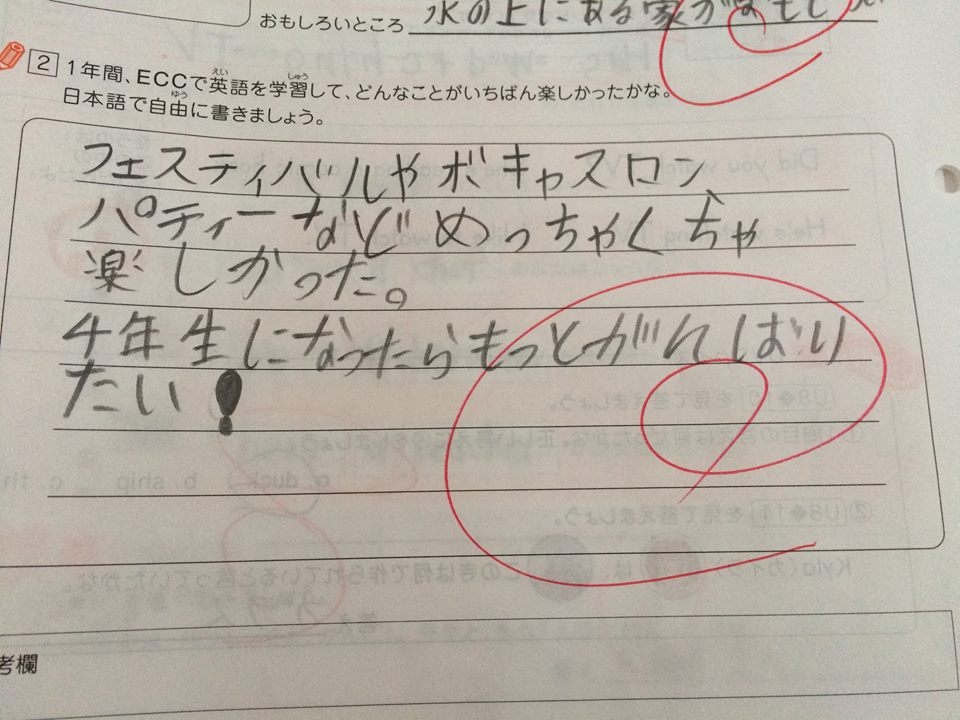 おもしろいところ 水の上にある家がおもしろい
2 1年間、ECCで英語を学習して、どんなことがいちばん楽しかったかな。
日本語で自由に書きましょう。
フェスティバルやボキャスロン、
パティーなどめっちゃくちゃ
楽しかった。
4年生になったらもっとがんばり
たい!
考欄